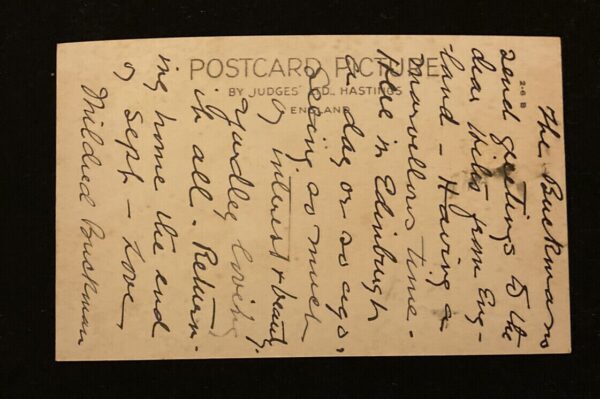 POSTCARD PICTURE
BY JUDGES' LTD., HASTINGS
ENGLAND
The Buckmans
send greetings to the
dear from Eng-
-land - Having a
marvellous time.
Were in Edinburgh
a day or so ago,
Seeing so much
of interest & beauty.
Yardley loving
it all. Return-
ing home the end
of Sept - Love,
Mildred Buckman